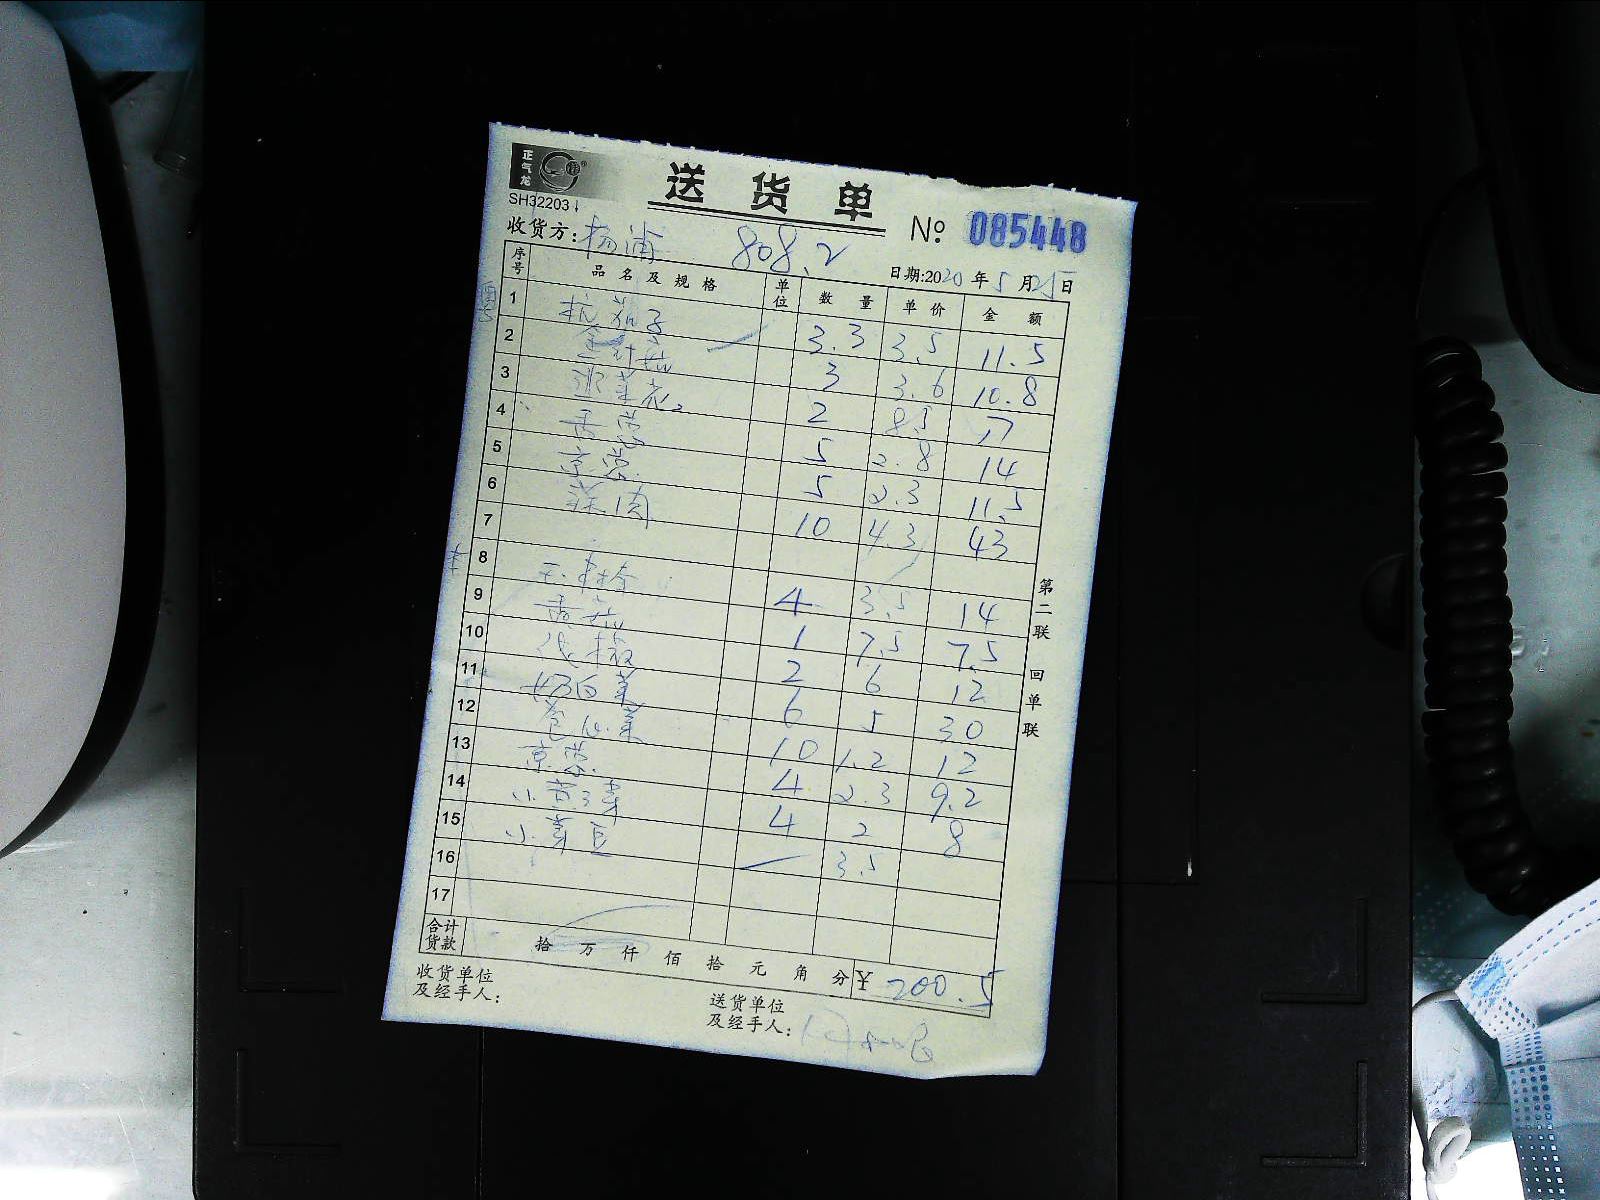 正气龙
SH32203
送货单
№ 085448
收货方: 杨浦 808.2
日期:2020年5月25日
序号 品名及规格 单位 数量 单价 金额
1 杭茄子 3.3 3.5 11.5
2 金针菇 3 3.6 10.8
3 菜花 2 8.5 17
4 5 2.8 14
5 京葱 5 2.3 11.5
6 10 4.3 43
7
8 4 3.5 14
9 香菇 1 7.5 7.5
10 2 6 12
11 奶白菜 6 5 30
12 卷心菜 10 1.2 12
13 京葱 4 2.3 9.2
14 4 2 8
15 3.5
16
17
合计货款 拾 万 仟 佰 拾 元 角 分 ¥ 200.5
收货单位及经手人:
送货单位及经手人:
第二联 回单联